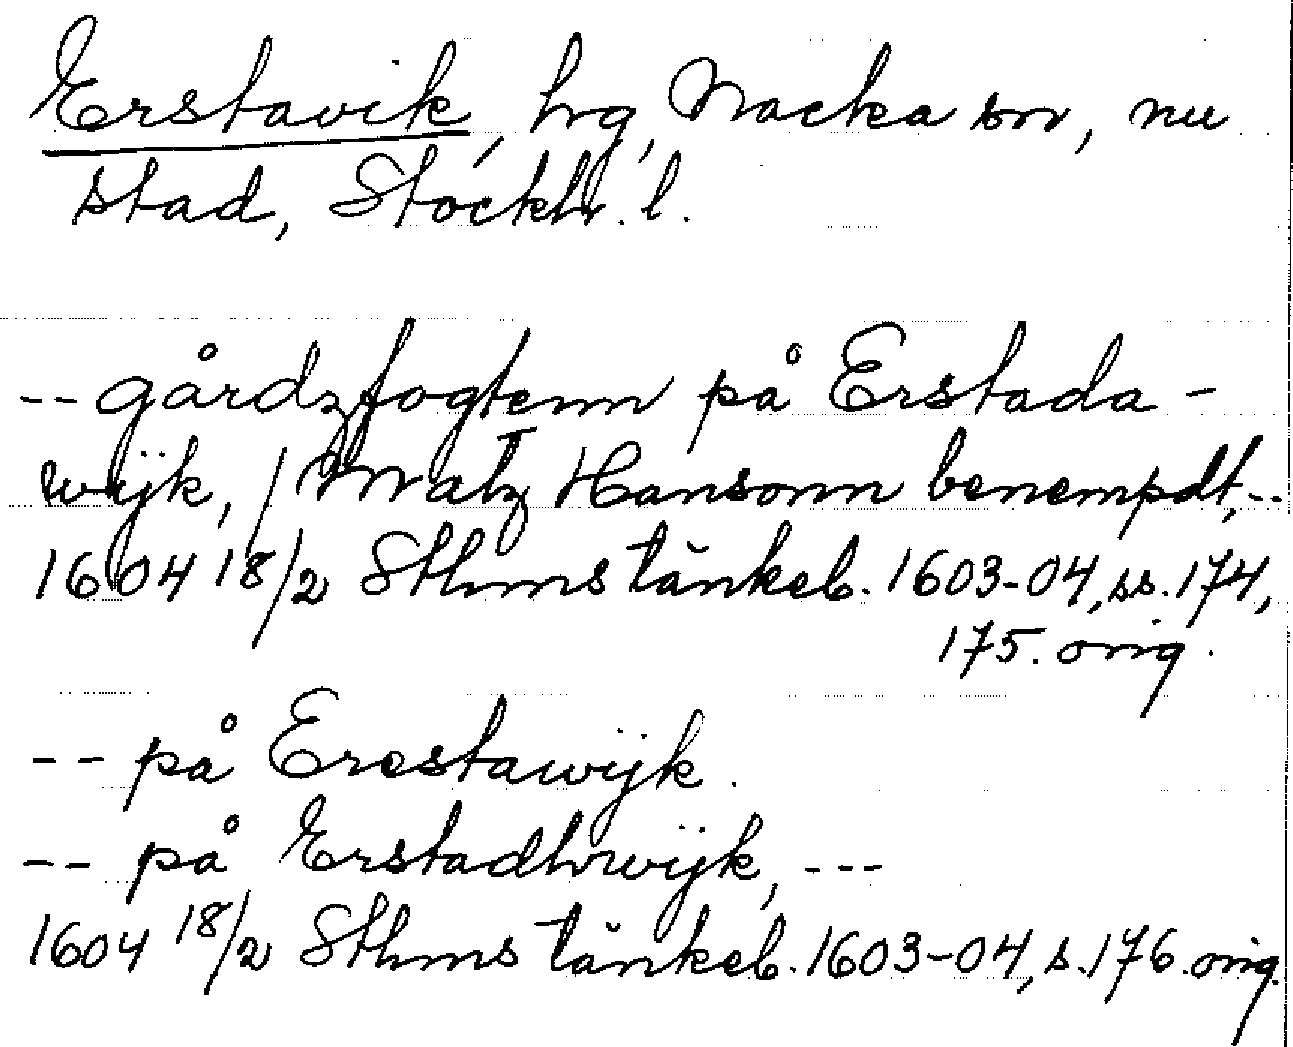 Erstavik, hrg, Nacka sn, nu
stad, Stockh. l.
-- gårdzfogtenn på Erstada-
wijk, / Matz Hansonn benempdt, --
1604 18/2 Sthms tänkeb. 1603-04, ss. 174,
175. orig.
-- på Erestawijk.
-- på Erstadhwijk, ---
1604 18/2 Sthms tänkeb. 1603-04, s. 176. orig.